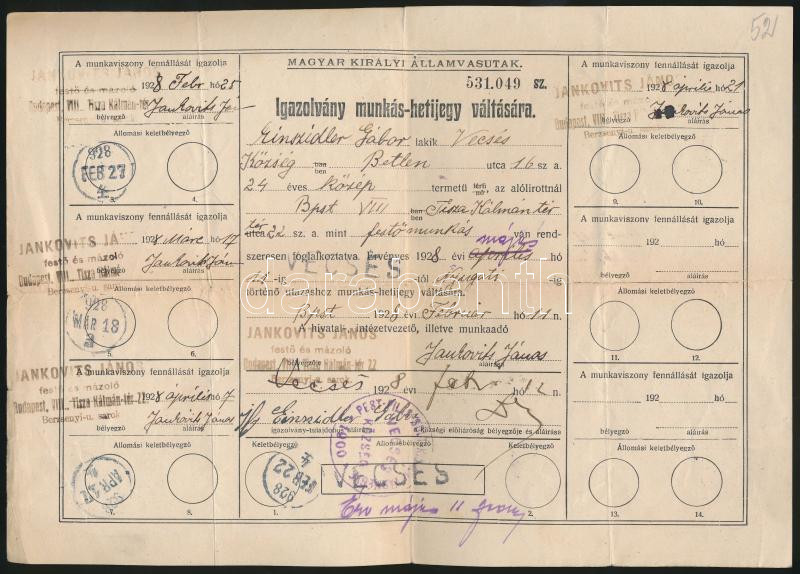 52
MAGYAR KIRÁLYI ÁLLAMVASUTAK.
531.049 SZ.
Igazolvány munkás-hetijegy váltására.
Einszidler Gábor lakik Vecsés
Község ban ben Betlen utca 16 sz a.
24 éves közép termetű férfi nő, az alólirottnál
Bpst VIII ban ben Tisza Kálmán tér
tér utca 22 sz. a. mint festő munkás van rend-
május
szeresen foglalkoztatva. Érvényes 1928 évi április hó
11-ig VECSÉS -tól Nyugati -ig
történő utazáshoz munkás-hetijegy váltására.
Bpst 1928 évi Február hó 11 n.
A hivatal-, intézetvezető, illetve munkaadó
JANKOVITS JÁNOS
festő és mázoló
Budapest, VIII., Tisza Kálmán-tér 22
Berzsenyi-u. sarok
bélyegzője aláírása
Jankovits János
Vecsés 1928 febr hó 12 n.
ifj Einszidler Gábor
igazolvány-tulajdonos aláírása
Községi elöljáróság bélyegzője és aláírása
VECSÉS
1900
Keletbélyegző Állomásbélyegző Keletbélyegző
928 FEB 22
VECSÉS
1. 2.
Érv május 11
A munkaviszony fennállását igazolja
JANKOVITS JÁNOS
festő és mázoló
Budapest, VIII., Tisza Kálmán-tér
1928 Febr hó 25
Jankovits Ján
bélyegző aláírás
Állomási keletbélyegző
928 FEB 27
3. 4.
A munkaviszony fennállását igazolja
JANKOVITS JÁN
festő és mázoló
Budapest, VIII., Tisza Kálmán
Berzsenyi-u. sarok
1928 Márc hó 17
Jankovits Ján
aláírás
Állomási keletbélyegző
928 MÁR 18
5. 6.
A munkaviszony fennállását igazolja
JANKOVITS JÁNOS
festő és mázoló
Budapest, VIII., Tisza Kálmán-tér 22
Berzsenyi-u. sarok
1928 április hó 7
Jankovits János
aláírás
Állomási keletbélyegző
7. 8.
A munkaviszony fennállását igazolja
JANKOVITS JÁNOS
festő és mázoló
Budapest, VIII., Tisza
Berzsenyi-u.
1928 április hó 21
Jankovits János
bélyegző aláírás
Állomási keletbélyegző
9. 10.
A munkaviszony fennállását igazolja
192 hó
bélyegző aláírás
Állomási keletbélyegző
11. 12.
A munkaviszony fennállását igazolja
192 hó
bélyegző aláírás
Állomási keletbélyegző
13. 14.
darabanth